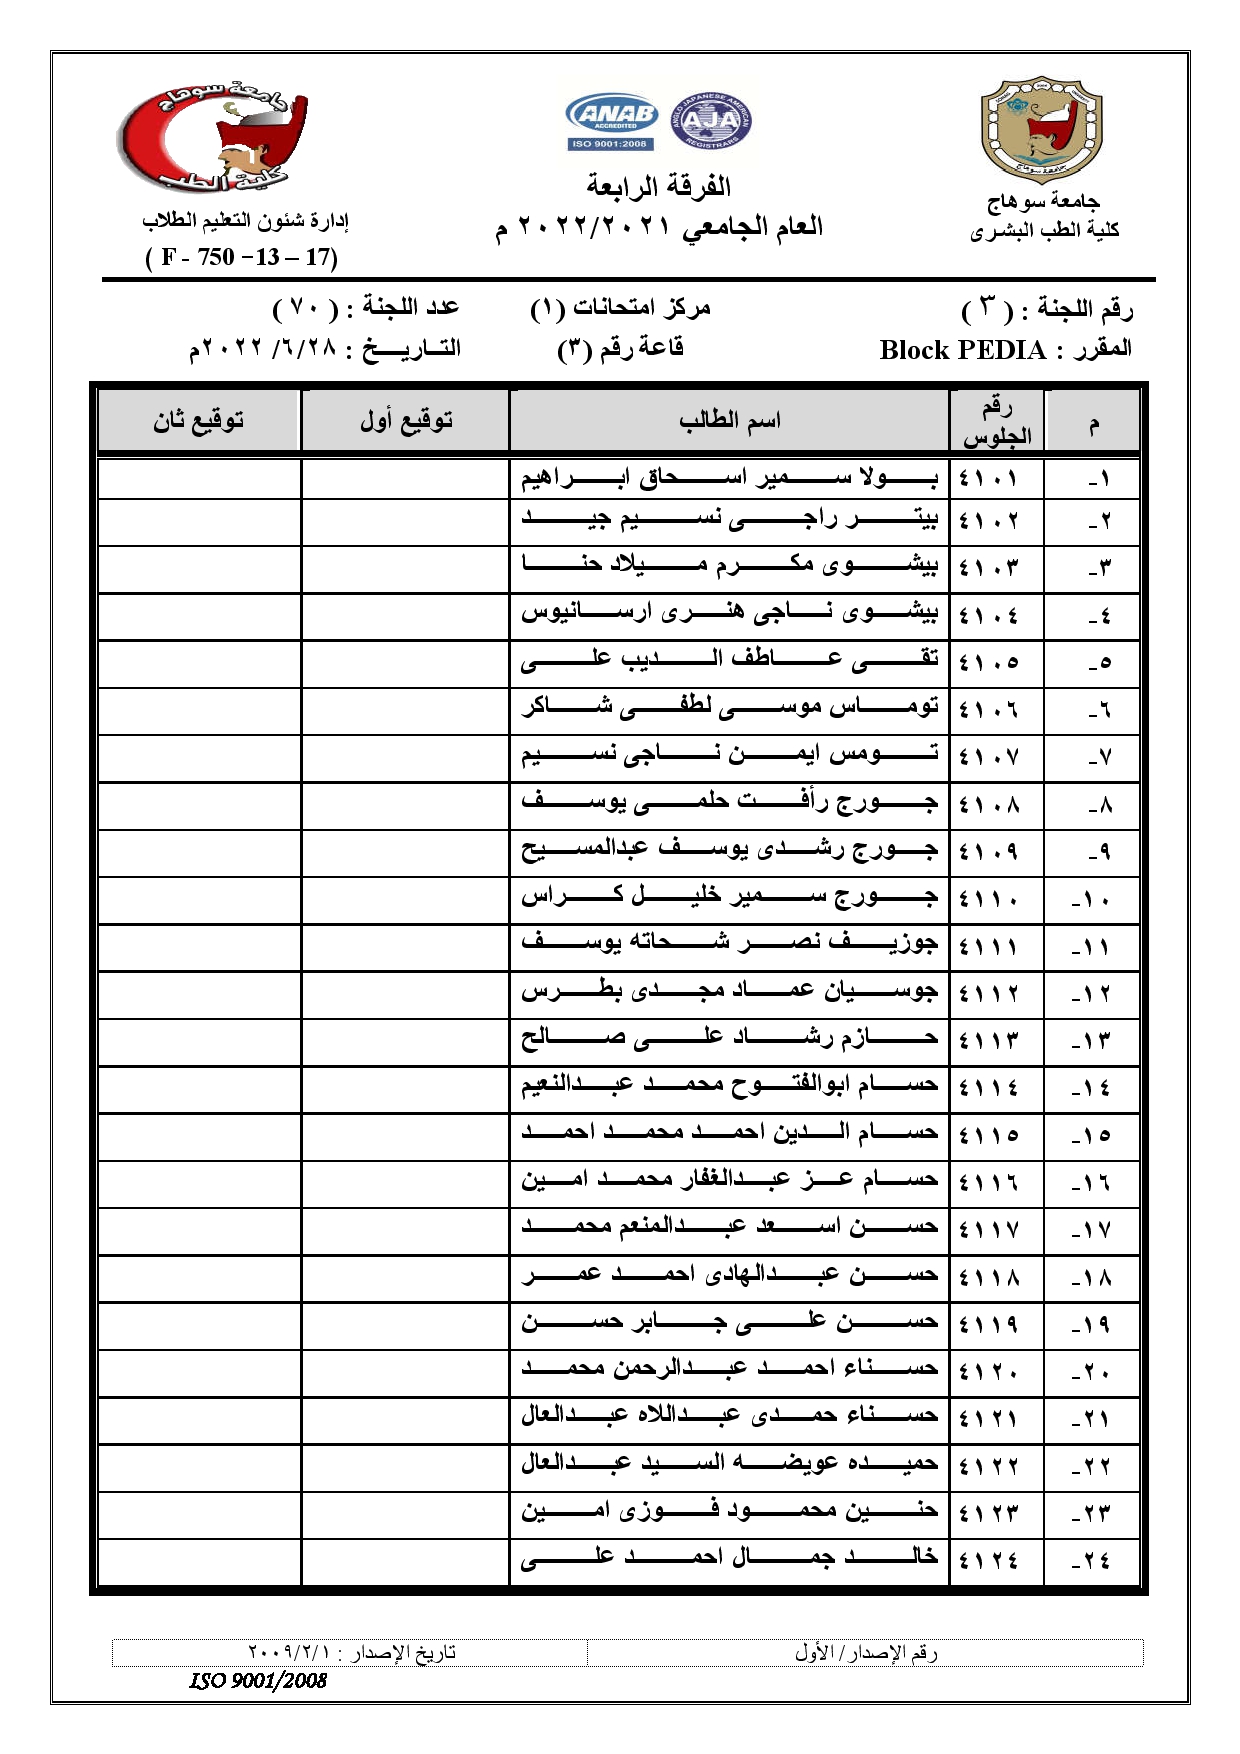 جامعة سوهاج
كلية الطب
ANAB
ACCREDITED
ISO 9001:2008
ANGLO JAPANESE AMERICAN
AJA
REGISTRARS
جامعة سوهاج
الفرقة الرابعة
العام الجامعي ٢٠٢٢/٢٠٢١ م
جامعة سوهاج
كلية الطب البشرى
إدارة شئون التعليم الطلاب
( F - 750 –13 – 17)
رقم اللجنة : ( ٣ ) مركز امتحانات (١) عدد اللجنة : ( ٧٠ )
المقرر : Block PEDIA قاعة رقم (٣) التــاريـــخ : ٢٨/٦/ ٢٠٢٢م
م رقم الجلوس اسم الطالب توقيع أول توقيع ثان
١- ٤١٠١ بولا سمير اسحاق ابراهيم
٢- ٤١٠٢ بيتر راجى نسيم جيد
٣- ٤١٠٣ بيشوى مكرم ميلاد حنا
٤- ٤١٠٤ بيشوى ناجى هنرى ارسانيوس
٥- ٤١٠٥ تقى عاطف الديب على
٦- ٤١٠٦ توماس موسى لطفى شاكر
٧- ٤١٠٧ تومس ايمن ناجى نسيم
٨- ٤١٠٨ جورج رأفت حلمى يوسف
٩- ٤١٠٩ جورج رشدى يوسف عبدالمسيح
١٠- ٤١١٠ جورج سمير خليل كراس
١١- ٤١١١ جوزيف نصر شحاته يوسف
١٢- ٤١١٢ جوسيان عماد مجدى بطرس
١٣- ٤١١٣ حازم رشاد على صالح
١٤- ٤١١٤ حسام ابوالفتوح محمد عبدالنعيم
١٥- ٤١١٥ حسام الدين احمد محمد احمد
١٦- ٤١١٦ حسام عز عبدالغفار محمد امين
١٧- ٤١١٧ حسن اسعد عبدالمنعم محمد
١٨- ٤١١٨ حسن عبدالهادى احمد عمر
١٩- ٤١١٩ حسن على جابر حسن
٢٠- ٤١٢٠ حسناء احمد عبدالرحمن محمد
٢١- ٤١٢١ حسناء حمدى عبداللاه عبدالعال
٢٢- ٤١٢٢ حميده عويضه السيد عبدالعال
٢٣- ٤١٢٣ حنين محمود فوزى امين
٢٤- ٤١٢٤ خالد جمال احمد على
رقم الإصدار/ الأول تاريخ الإصدار : ٢٠٠٩/٢/١
ISO 9001/2008